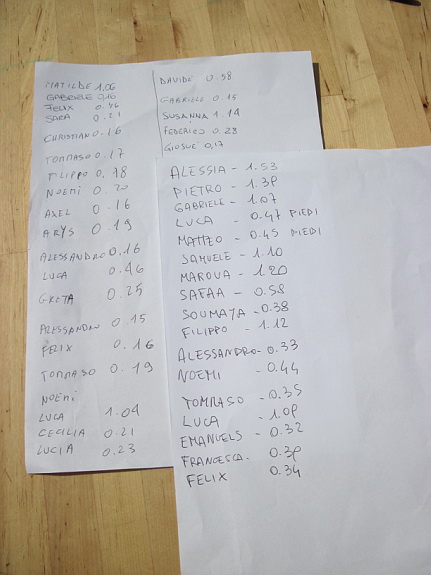 MATILDE 1.06
GABRIELE 0.16
FELIX 0.46
SARA 0.21
CHRISTIAN 0.16
TOMMASO 0.17
FILIPPO 0.18
NOEMI 0.20
AXEL 0.16
ARYS 0.19
ALESSANDRO 0.16
LUCA 0.46
GRETA 0.25
ALESSANDRO 0.15
FELIX 0.16
TOMMASO 0.19
NOEMI
LUCA 1.04
CECILIA 0.21
LUCIA 0.23
DAVIDE 0.58
GABRIELE 0.18
SUSANNA 1.14
FEDERICO 0.28
GIOSUE 0,17
ALESSIA - 1.53
PIETRO - 1.39
GABRIELE - 1.07
LUCA - 0.47 PIEDI
MATTEO - 0.45 PIEDI
SAMUELE - 1.10
MAROUA - 1.20
SAFAA - 0.58
SOUMAYA - 0.38
FILIPPO - 1.12
ALESSANDRO - 0.33
NOEMI - 0.44
TOMMASO - 0.35
LUCA - 1.09
EMANUELS - 0.32
FRANCESCA. 0.39
FELIX 0.34